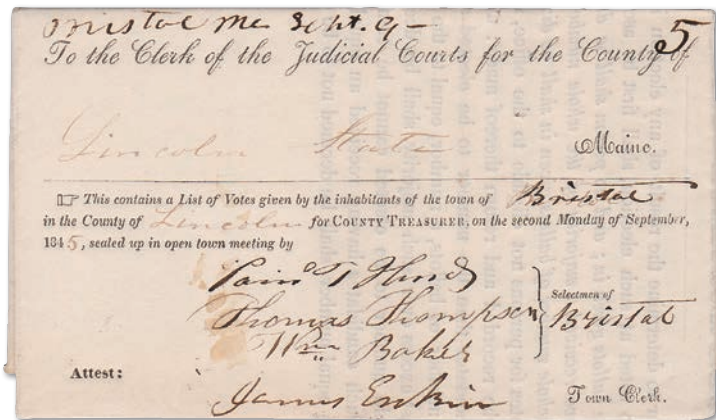 Bristol Me Sept. 9 – 5
To the Clerk of the Judicial Courts for the County of
Lincoln State Maine.
☞ This contains a List of Votes given by the inhabitants of the town of Bristol
in the County of Lincoln for COUNTY TREASURER, on the second Monday of September,
1845, sealed up in open town meeting by
Thomas Thompson
Wm Baker
Selectmen of
Bristol
Attest:
James Erskin Town Clerk.